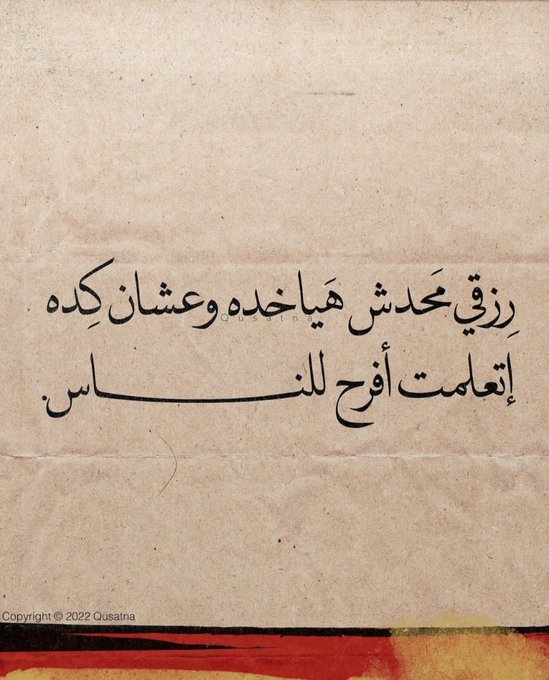 رِزقي مَحدش هَياخده وعشان كِده
Qusatna
إتعلمت أفرح للنـــــاس.
Copyright © 2022 Qusatna